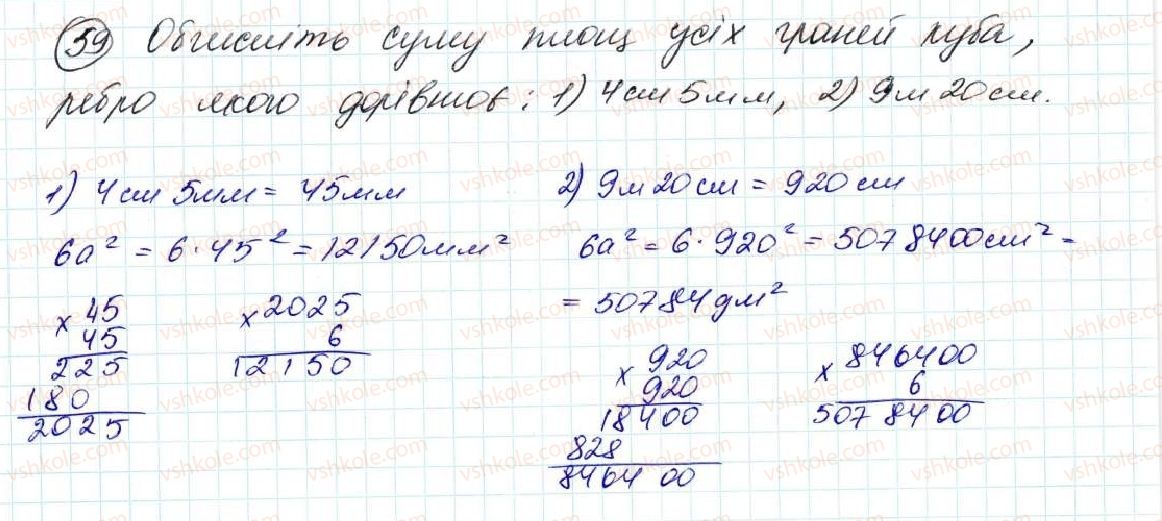 59 Обчисліть суму площ усіх граней куба,
ребро якого дорівнює: 1) 4см 5мм, 2) 9м 20см.
1) 4см 5мм = 45мм
6a² = 6·45² = 12150мм²
× 45
45
225
180
2025
× 2025
6
12150
2) 9м 20см = 920см
6a² = 6·920² = 5078400см² =
= 50784дм²
× 920
920
18400
828
846400
× 846400
6
5078400